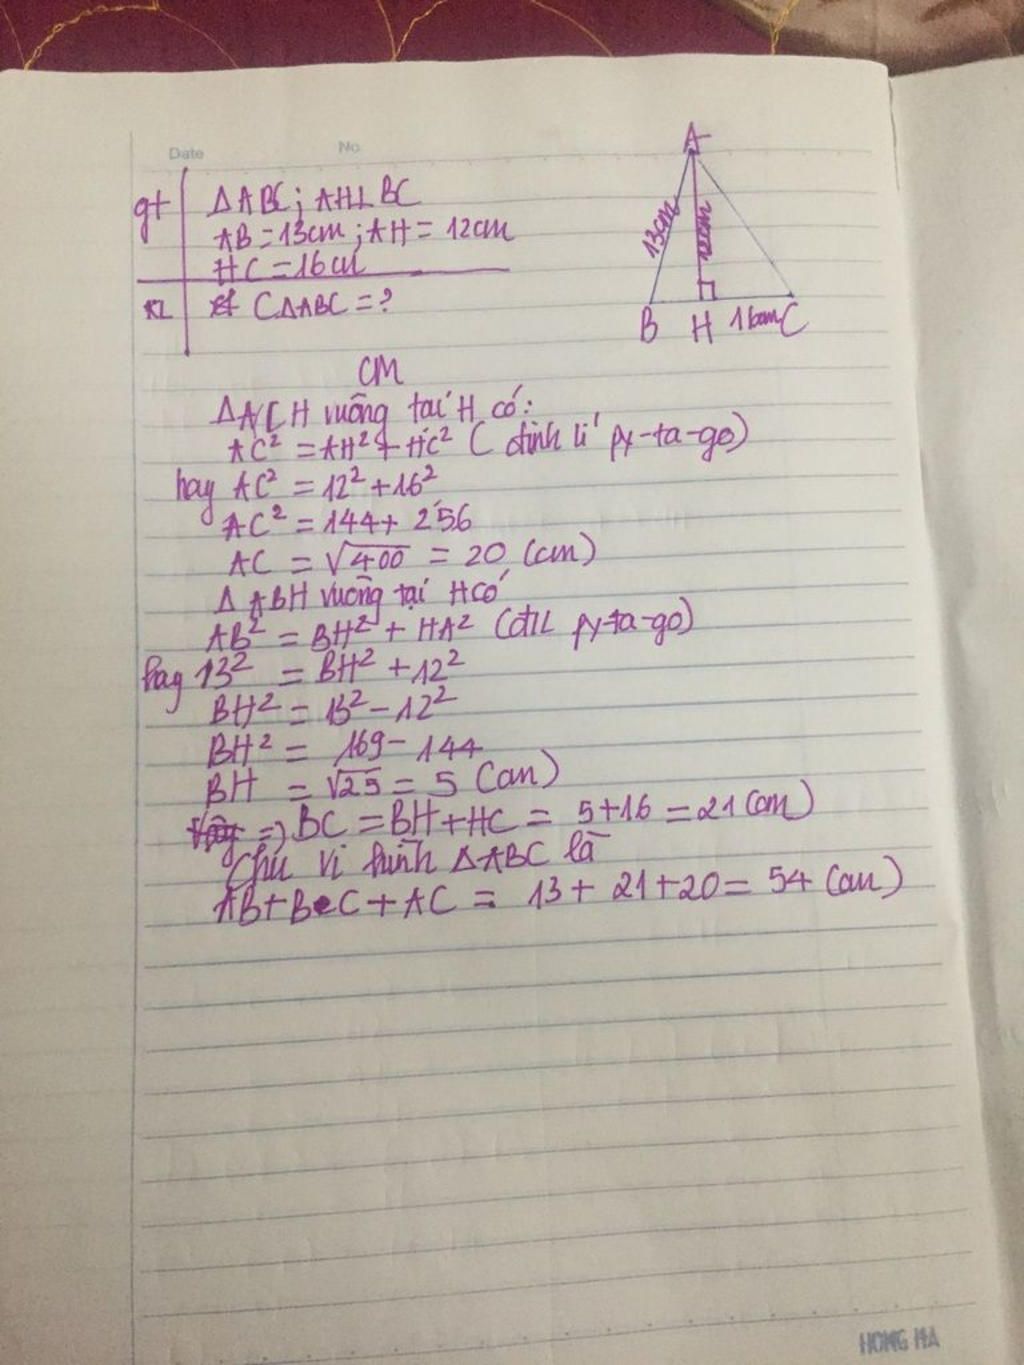 Date No
gt ΔABC; AH⊥BC
AB=13cm; AH= 12cm
HC =16cm
KL CΔABC=?
A
13cm
B H 16cm C
CM
ΔACH vuông tại H có:
AC² = AH² + HC² ( định lí py-ta-go)
hay AC² = 12² +16²
AC² = 144+ 256
AC = √400 = 20 (cm)
Δ ABH vuông tại H có
AB² = BH² + HA² (đlí py-ta-go)
hay 13² = BH² +12²
BH² = 13² -12²
BH² = 169 - 144
BH = √25 = 5 (cm)
=) BC = BH+HC = 5+16 =21 (cm)
Chu vi hình ΔABC là
AB+BC+AC = 13+ 21+20= 54 (cm)
HONG HA